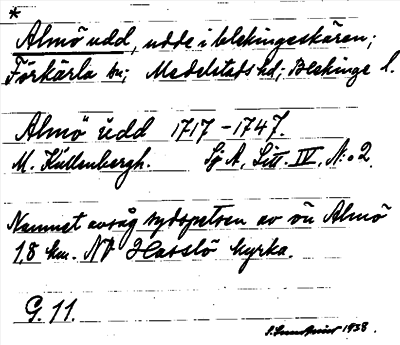 *
Almö udd, udde i blekingeskären;
Förkärla sn; Medelstads hd; Blekinge l.
Almö udd 1717-1747.
M. Küllenbergh. Sj A, Litt. IV, N:o 2.
Namnet avsåg sydspetsen av ön Almö
1,8 km. NV Hasslö kyrka.
G. 11.
1938.